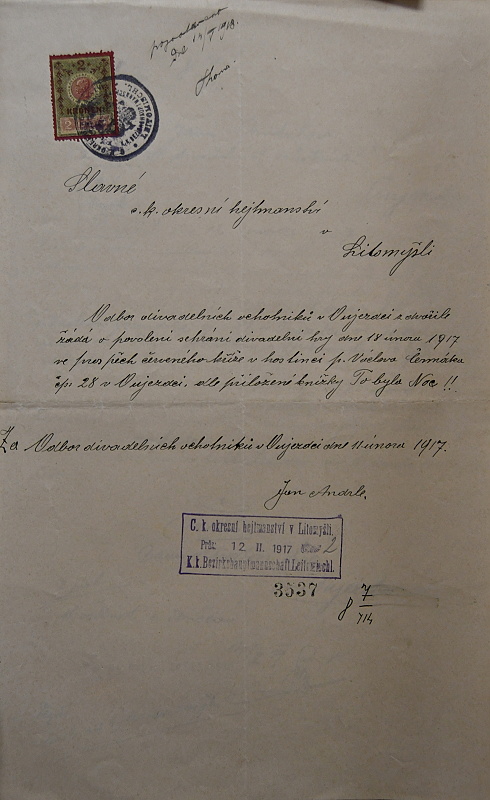 Slavné
c. k. okresní hejtmanství
v
Litomyšli
Odbor divadelních ochotníků v Oujezdci zdvořile
žádá o povolení sehrání divadelní hry dne 18 února 1917
ve prospěch červeného kříže v hostinci p. Václava Čermáka
čp. 28 v Oujezdci, dle přiložené knížky To byla Noc !!
Za Odbor divadelních ochotníků v Oujezdci dne 11 února 1917.
Jan Andrle.
C. k. okresní hejtmanství v Litomyšli.
Präs: 12. II. 1917 2
K. k. Bezirkshauptmannschaft Leitomischl.
3537
8 7/714